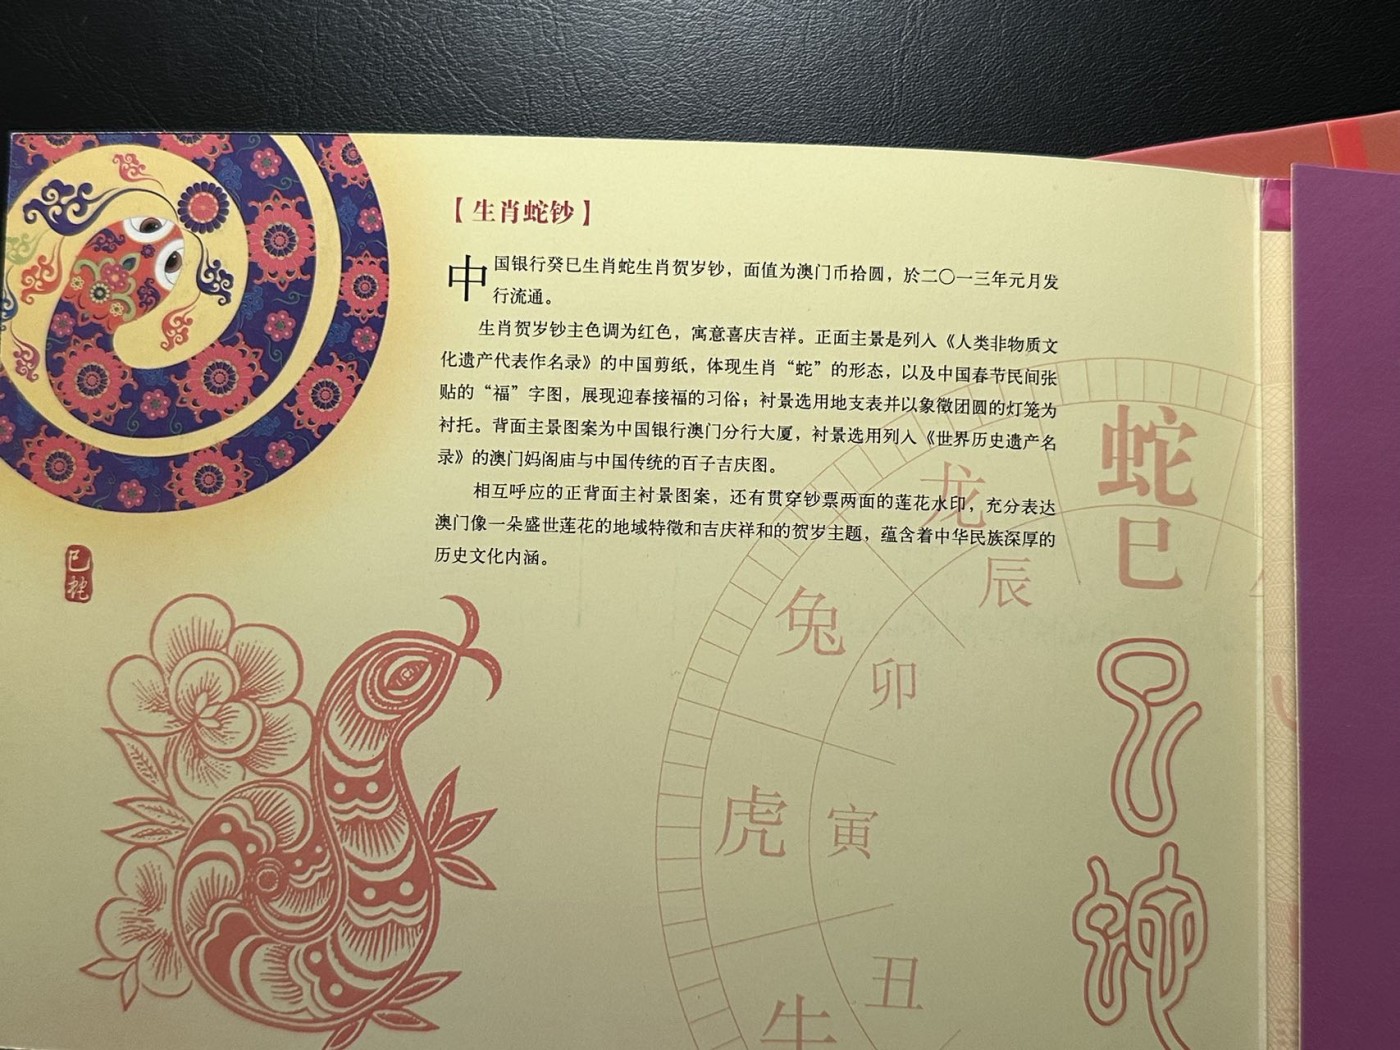 【生肖蛇钞】
中国银行癸巳生肖蛇生肖贺岁钞，面值为澳门币拾圆，於二〇一三年元月发
行流通。
生肖贺岁钞主色调为红色，寓意喜庆吉祥。正面主景是列入《人类非物质文
化遗产代表作名录》的中国剪纸，体现生肖“蛇”的形态，以及中国春节民间张
贴的“福”字图，展现迎春接福的习俗；衬景选用地支表并以象徵团圆的灯笼为
衬托。背面主景图案为中国银行澳门分行大厦，衬景选用列入《世界历史遗产名
录》的澳门妈阁庙与中国传统的百子吉庆图。
相互呼应的正背面主衬景图案，还有贯穿钞票两面的莲花水印，充分表达
澳门像一朵盛世莲花的地域特徵和吉庆祥和的贺岁主题，蕴含着中华民族深厚的
历史文化内涵。
巳
蛇
蛇
巳
巳
蛇
龙
辰
兔
卯
虎
寅
牛
丑